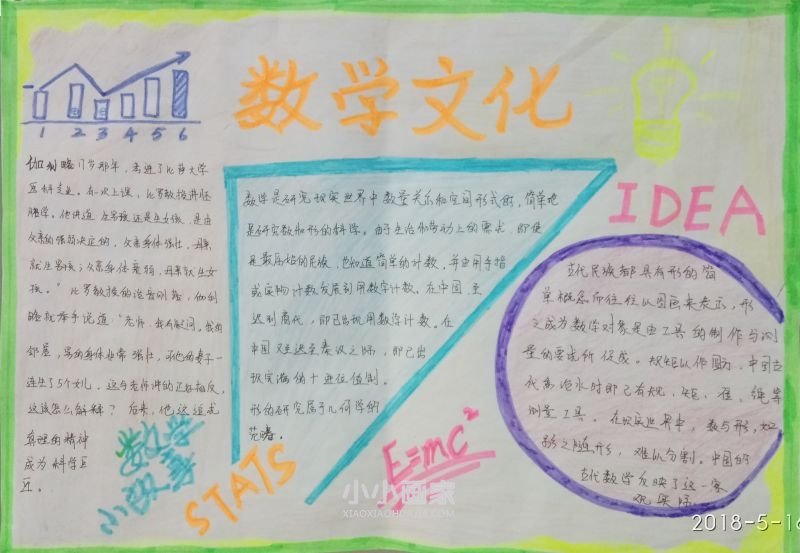 数学文化
1 2 3 4 5 6
IDEA
伽利略17岁那年，考进了比萨大学
医科专业。有一次上课，比罗教授讲胚
胎学。他讲道"生男孩还是生女孩，是由
父亲的强弱决定的，父亲身体强壮，母亲
就生男孩；父亲身体衰弱，母亲就生女
孩。"比罗教授的话音刚落，伽利
略就举手说道："老师，我有疑问。我的
邻居，男的身体非常强壮，可他的妻子一
连生了5个女儿，这与老师讲的正好相反，
这该怎么解释？后来，他这追求
真理的精神
成为科学巨
匠。
数学
小故事
数学是研究现实世界中数量关系和空间形式的，简单地
是研究数和形的科学。由于生活和劳动上的需求，即使
是最原始的民族，也知道简单的计数，并由用手指
或实物计数发展到用数字计数。在中国，至
迟到商代，即已出现用数字计数。在
中国又至迟至秦汉之际，即已出
现完满的十进位值制。
形的研究属于几何学的
范畴。
STATS
E=mc²
古代民族都具有形的简
单概念而往往以图画来表示，形
之成为数学对象是由工具的制作与测
量的要求所促成。规矩以作圆方，中国古
代禹治水时即已有规、矩、准、绳等
测量工具。在现实世界中，数与形，如
影之随形，难以分割。中国的
古代数学反映了这一客
观实际
小小画家
XIAOXIAOHUAJIA.COM
2018-5-16